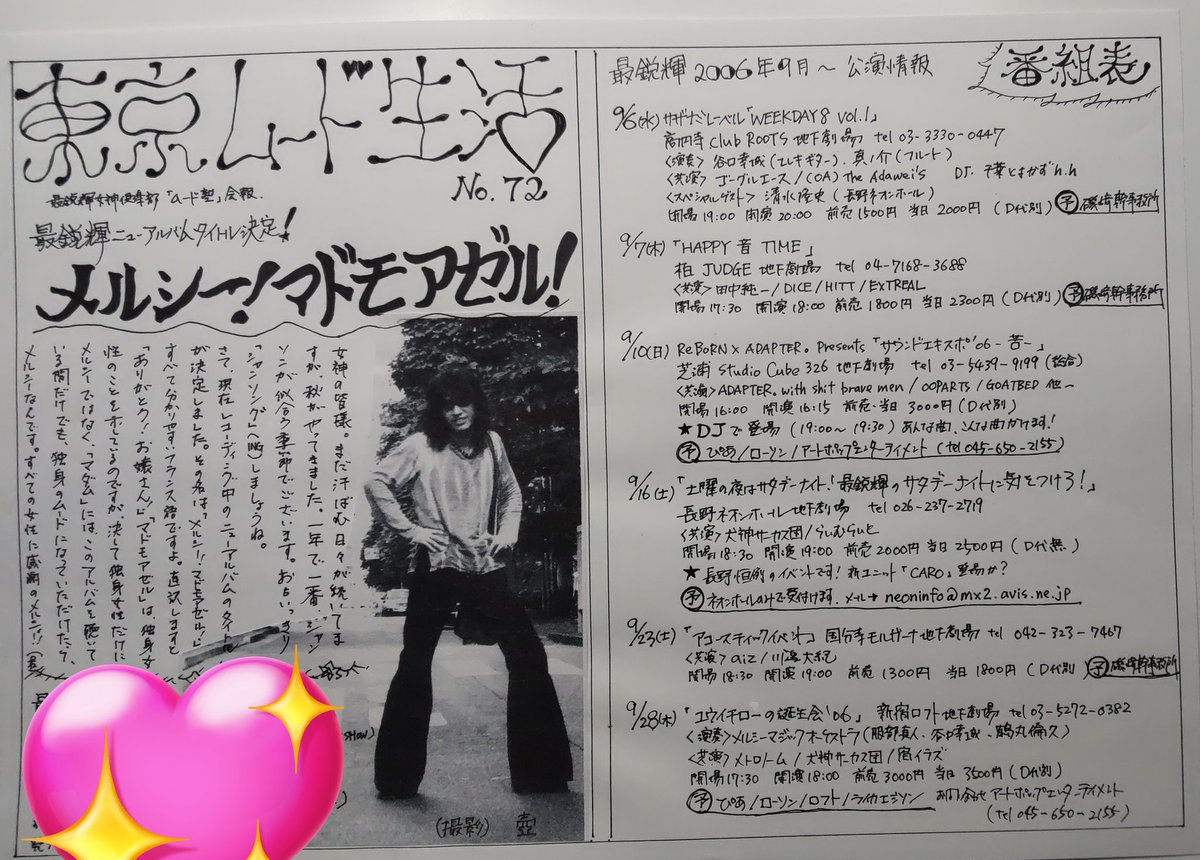 東京ムード生活
No. 72
最鋭輝女神倶楽部「ムード塾」会報.
最鋭輝ニューアルバムタイトル決定!
メルシー!マドモアゼル!
女神の皆様。まだ汗ばむ日々が続いてま
すが、秋がやってきました。一年で一番シャン
ソンが似合う季節でございます。お占いっきり
「シャンソング」(ING)しましょうね。
さて、現在レコーディング中のニューアルバムのタイトル
が決定しました。その名は「メルシー!マドモアゼル!」
すべて分かりやすいフランス語ですよ。直訳しますと
「ありがとう!お嬢さん!」「マドモアゼル」は、独身女
性のことを示しているのですが、決して独身女性だけに
メルシーではなく、「マダム」には、このアルバムを聴いて
いる間だけでも、独身のムードになっていただけたら、
メルシーなんです。すべての女性に感謝のメルシー!
(撮影) 壺
番組表
最鋭輝 2006年9月〜 公演情報
9/6(水) サボテンレーベル「WEEKDAY8 VOL.1」
高円寺 Club ROOTS 地下劇場 tel 03-3330-0447
<演奏> 谷口幸城(エレキギター)、真ノ介(フルート)
<共演> ゴーグルエース/(OA) The Adawei's DJ. 千葉とよかず h.h
<スペシャルゲスト> 清水隆史(長野ネオンホール)
開場19:00 開演20:00 前売1500円 当日2000円(D代別) 予 磯崎幹事務所
9/7(木)「HAPPY 音 TIME」
柏 JUDGE 地下劇場 tel 04-7168-3688
<共演> 田中純一/DICE/HITT/EXTREAL
開場17:30 開演18:00 前売1800円 当日2300円(D代別) 予 磯崎幹事務所
9/10(日) Re:BORN × ADAPTER。Presents「サウンドエキスポ'06 -苦-」
芝浦 Studio Cube 326 地下劇場 tel 03-5439-9199 (総合)
<共演> ADAPTER。with shit brave men/OOPARTS/GOATBED 他〜
開場16:00 開演16:15 前売・当日3000円(D代別)
★DJで登場(19:00〜19:30) あんな曲、こんな曲かけます!
予 ぴあ/ローソン/アートポップエンターテイメント(tel 045-650-2155)
9/16(土)「土曜の夜はサタデーナイト!最鋭輝のサタデーナイトに気をつけろ!」
長野ネオンホール地下劇場 tel 026-237-2719
<共演> 犬神サーカス団/らいむらいと
開場18:30 開演19:00 前売2000円 当日2500円(D代無)
★長野恒例のイベントです!新ユニット「CARO」登場か?
予 ネオンホールのみで受付けます。メール→neoninfo@mx2.avis.ne.jp
9/23(土)「アコースティックイベント」国分寺モルガーナ地下劇場 tel 042-323-7467
<共演> aiz/川島大紀
開場18:30 開演19:00 前売1300円 当日1800円(D代別) 予 磯崎幹事務所
9/28(木)「ユウイチローの誕生会'06」新宿ロフト地下劇場 tel 03-5272-0382
<演奏> メルシーマジックオーケストラ(服部真人、谷口幸城、鶴丸倫久)
<共演> メトロノーム/犬神サーカス団/宿イラズ
開場17:30 開演18:00 前売3000円 当日3500円(D代別)
予 ぴあ/ローソン/ロフト/ライカエジソン お問合せ アートポップエンターテイメント
(tel 045-650-2155)